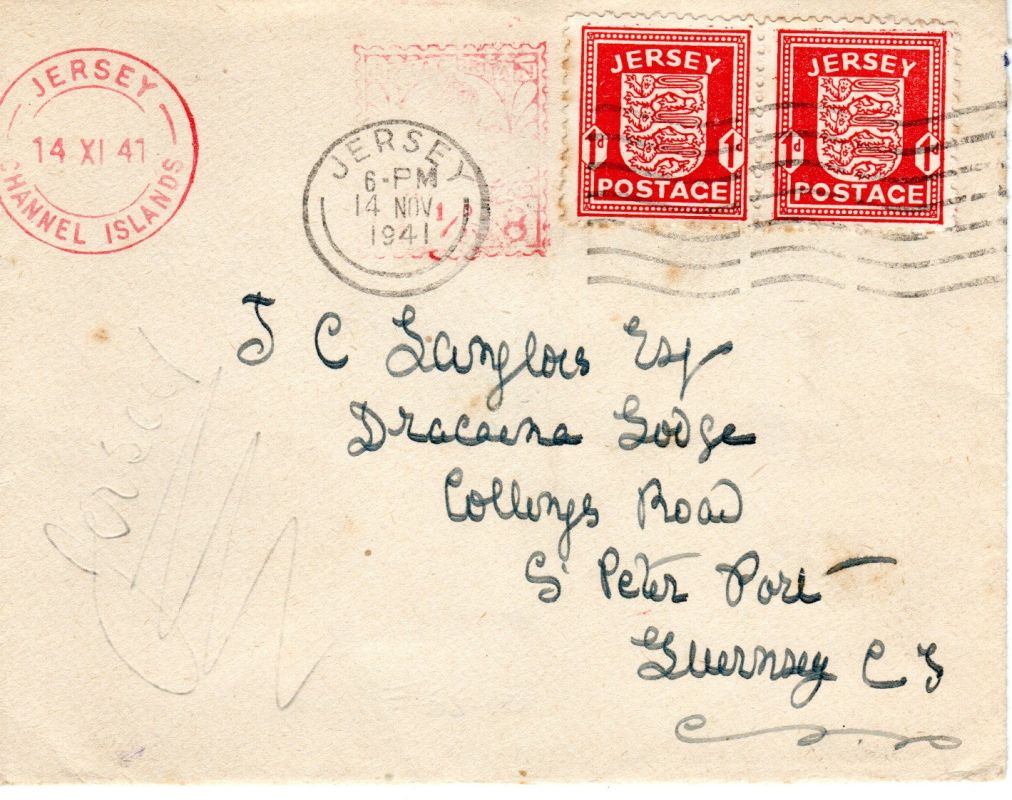 JERSEY
14 XI 41
CHANNEL ISLANDS
JERSEY
6-PM
14 NOV
1941
JERSEY
1d 1d
POSTAGE
JERSEY
1d 1d
POSTAGE
J C Langlois Esq
Dracaena Lodge
Collings Road
St Peter Port
Guernsey C I